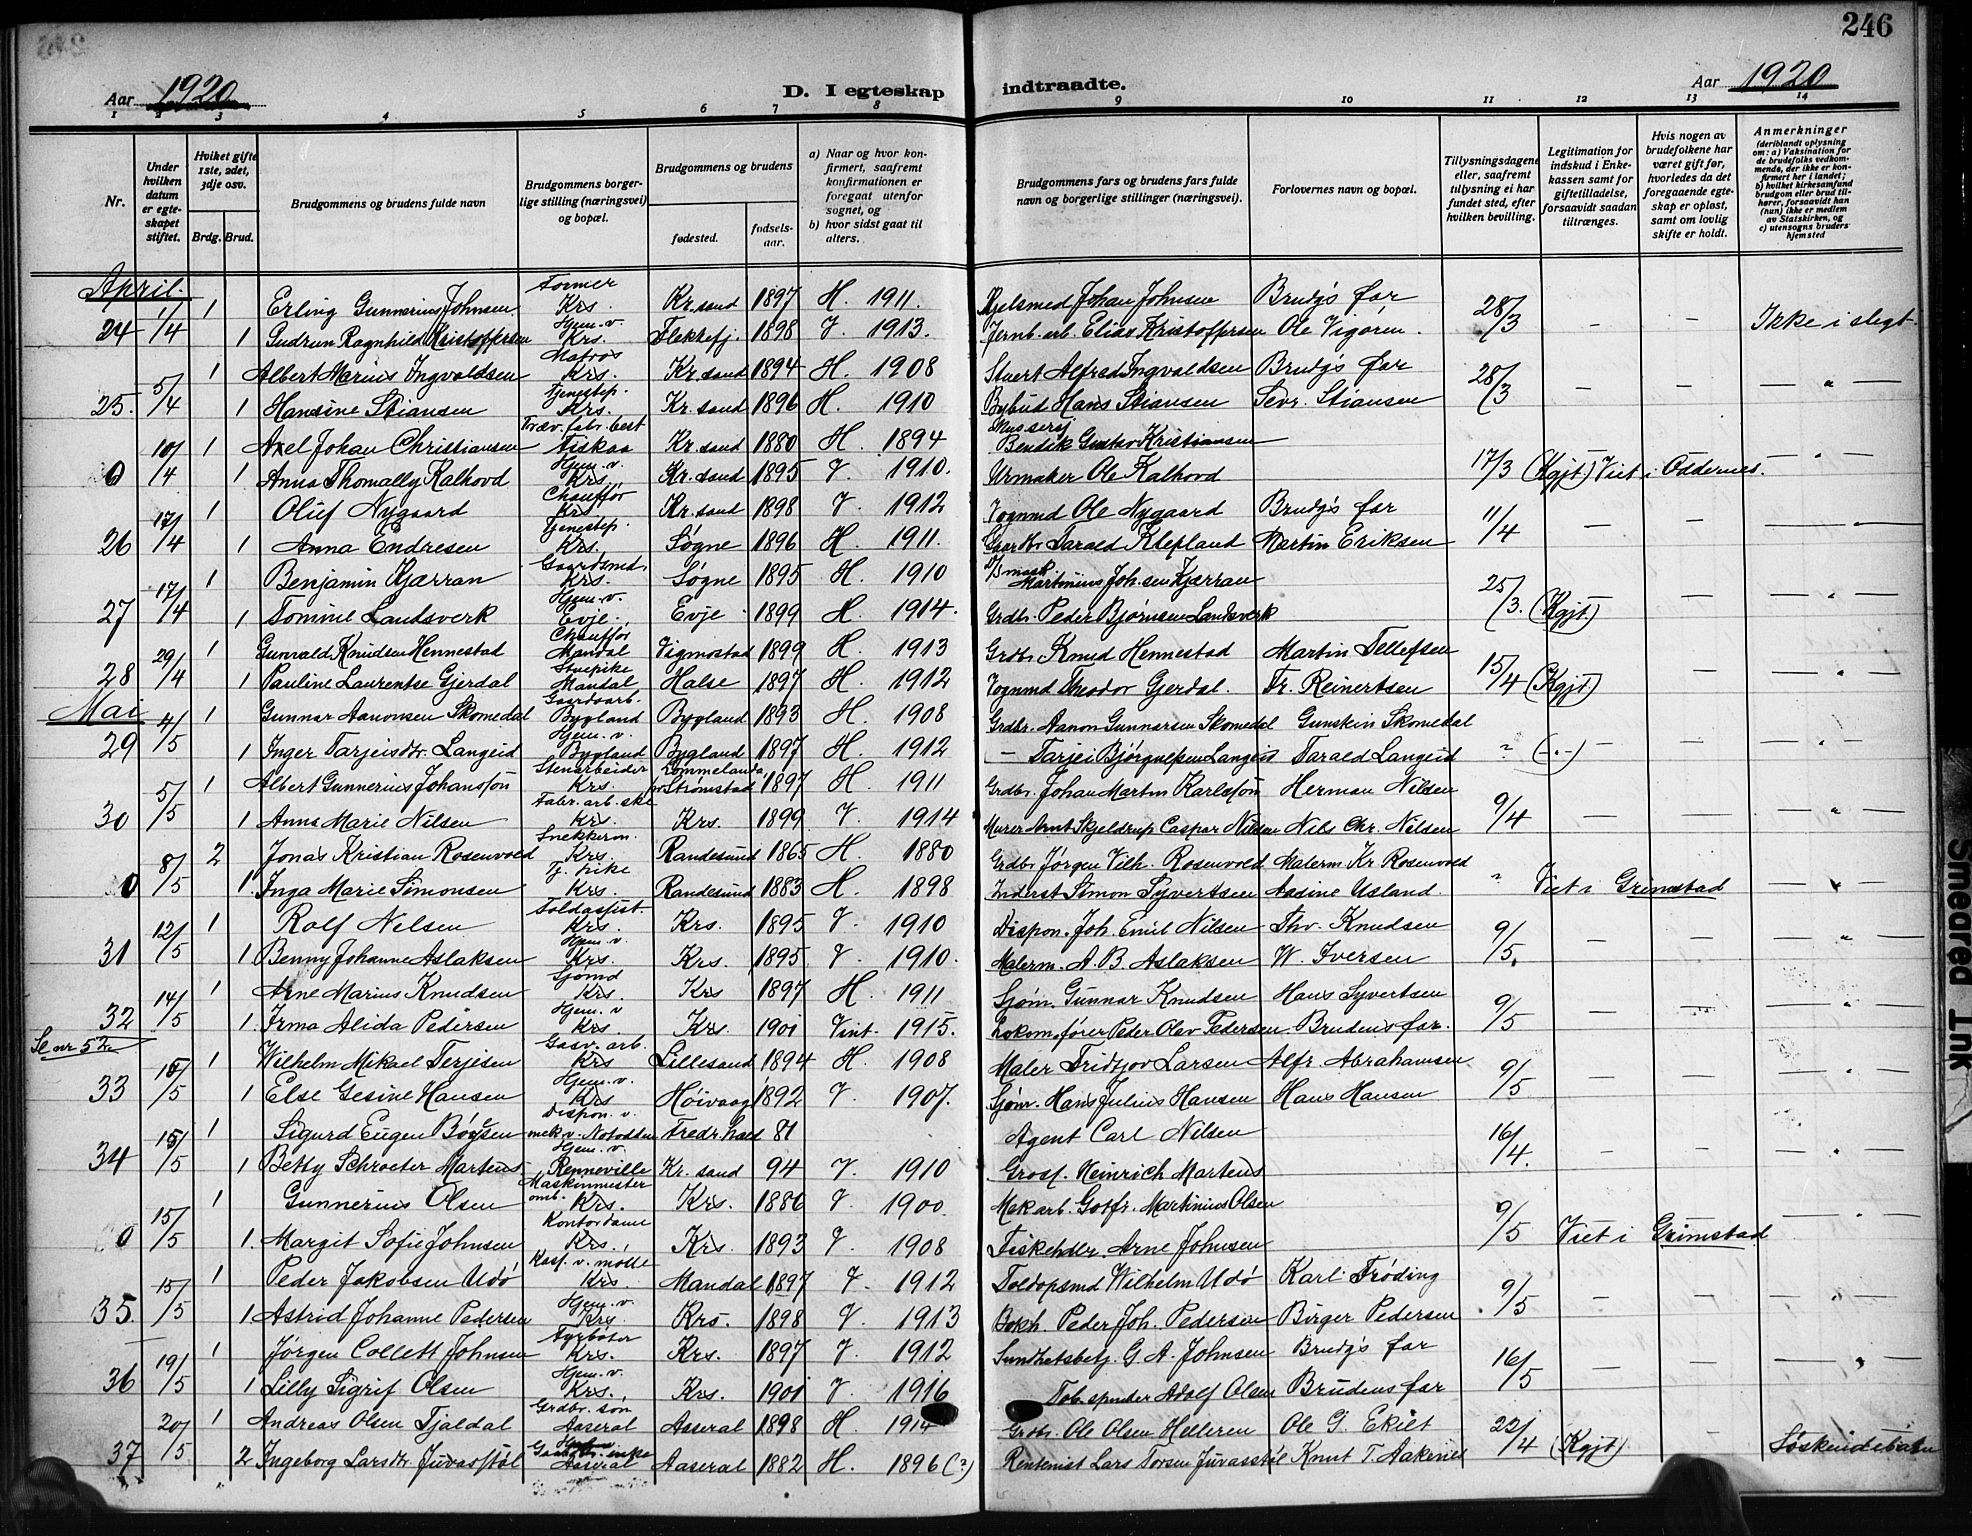 246
Aar 1920 D. I egteskap indtraadte. Aar 1920
1 2 3 4 5 6 7 8 9 10 11 12 13 14
Nr.
Under hvilken datum er egteskapet stiftet.
Hvilket gifte 1ste, 2det, 3dje osv.
Brdg. Brud.
Brudgommens og brudens fulde navn
Brudgommens borgerlige stilling (næringsvei) og bopæl.
Brudgommens og brudens
fødested. fødselsaar.
a) Naar og hvor konfirmert, saafremt konfirmationen er foregaat utenfor sognet, og
b) hvor sidst gaat til alters.
Brudgommens fars og brudens fars fulde navn og borgerlige stillinger (næringsvei).
Forlovernes navn og bopæl.
Tillysningsdagene eller, saafremt tillysning ei har fundet sted, efter hvilken bevilling.
Legitimation for indskud i Enkekassen samt for giftetilladelse, forsaavidt saadan tiltrænges.
Hvis nogen av brudefolkene har været gift før, hvorledes da det foregaaende egteskap er opløst, samt om lovlig skifte er holdt.
Anmerkninger (deriblandt oplysning om: a) Vaksination for de brudefolks vedkommende, der ikke er konfirmert her i landet; b) hvilket kirkesamfund brudgom eller brud tilhører, forsaavidt han (hun) ikke er medlem av Statskirken, og c) utensogns bruders hjemsted
April.
1/4 1 Erling Gunnerius Johnsen Former Krs Kr.sand 1897 H. 1911. Kjelsmed Johan Johnsen Brudg's far 28/3 – – Ikke i slegt
24 1 Gudrun Ragnhild Kristoffersen Hjem.v. Krs. Flekkefj. 1898 V. 1913. Jernb.arb. Elias Kristoffersen Ole Vigøren.
5/4 1 Albert Marius Ingvaldsen Matros Krs. Kr.sand 1894 H. 1908 Stuert Alfred Ingvaldsen Brudg's far 28/3 – – "
25. 1 Hansine Stiansen Tjenestep. Krs. Kr.sand 1896 H. 1910 Bybud Hans Stiansen Sevr. Stiansen
10/4 1 Axel Johan Christiansen Træv.fabr.best Fiskaa Kr.sand 1880 H. 1894 Bendik Gustav Kristiansen
0 1 Anna Thomally Kalhovd Hjem.v. Krs. Kr.sand 1895 V. 1910. Urmaker Ole Kalhovd 17/3 (Kgjt) Viet i Oddernes.
17/4 1 Oluf Nygaard Chauffør Krs Kr.sand 1898 V. 1912 Vognmd Ole Nygaard Brudg's far 11/4
26 1 Anna Endresen Tjenestep. Krs. Søgne 1896 H. 1911. Gaardbr Tarald Klepland Martin Eriksen
17/4 1 Benjamin Kjærran Gaardsmd. Krs. Søgne 1895 H. 1910 Martinius Joh.sen Kjærran 25/3. (Kgjt.)
27 1 Tomine Landsverk Hjem.v. Evje. Evje 1899 H. 1914. Grdbr. Peder Bjørnsen Landsverk
29/4 1 Gunvald Knudsen Hennestad Chauffør Mandal Vigmostad 1899 H. 1913 Grdbr. Knud Hennestad Martin Tellefsen 15/4 (Kgjt)
28 1 Pauline Laurentse Gjerdal Stuepike Mandal Halse 1897 H. 1912 Vognmd Theodor Gjerdal. Fr. Reinertsen
Mai
4/5 1 Gunnar Aanonsen Skomedal Gaardsarb. Bygland Bygland 1893 H. 1908 Grdbr. Aanon Gunnarsen Skomedal Gunstein Skomedal
29 1 Inger Tarjeisdtr. Langeid Hjem.v. Bygland Bygland 1897 H. 1912 – Tarjei Bjørgulfsen Langeid Tarald Langeid " (–"–)
5/5 1 Albert Gunnerius Johansson Stenarbeider Krs. Strømstad 1897 H. 1911 Grdbr. Johan Martin Karlsson Herman Nilsen 9/4
30 1 Anna Marie Nilsen Fabr.arb.ske Kr. Krs. 1899 V. 1914 Murer Arnt Skjeldrup Caspar Nilsen Nils Chr. Nilsen
8/5 2 Jonas Kristian Rosenvold Snekkerm. Krs. Randesund 1865 H. 1880 Grdbr Jørgen Vilh. Rosenvold Malerm. Kr. Rosenvold
0 1. Inga Marie Simonsen Tj.pike Krs. Randesund 1883 H. 1898 Inderst Simon Syvertsen Aasine Usland. " Viet i Grimstad
12/5 1 Rolf Nilsen Toldassist. Krs. Krs. 1895 V. 1910 Dispon. Joh. Emil Nilsen Thv. Knudsen 9/5.
31 1 Benny Johanne Aslaksen Hjem.v. Krs. Krs. 1895 V. 1910. Malerm. A.B. Aslaksen W. Iversen
14/5 1 Arne Marius Knudsen Sjømd Krs. Krs 1897 H. 1911 Sjøm. Gunnar Knudsen Hans Syvertsen 9/5
32 1. Irma Alida Pedersen Hjem.v Krs. Krs. 1901 Vint. 1915. Lokom.fører Peder Olav Pedersen Brudens far.
Se nr 52
15/5 1 Wilhelm Mikael Terjesen Gasv.arb. Krs Lillesand 1894 H. 1908 Maler Fridtjov Larsen Alfr. Abrahamsen 9/5
33 1 Else Gesine Hansen Hjem.v. Krs Høivaag 1892 V. 1907. Sjøm. Hans Julius Hansen Hans Hansen
15/5 1 Sigurd Eugen Bøysen Dispon. v. mek.v. Notodden Fredr.hald 81 Agent Carl Nilsen 16/4.
34 1 Betty Schroeter Martens Hjem.v. Renneville Kr.sand 94 V. 1910 Gross. Heinrich Martens
15/5 1 Gunnerius Olsen Maskinmester omb. Krs. Krs. 1886 V. 1900. Mek arb. Gotfr. Martinius Olsen 9/5 Viet i Grimstad
0 1. Margit Sofie Johnsen Kontordame Krs. Krs. 1893 V. 1908 Fiskehdler. Arne Johnsen
15/5 1 Peder Jakobsen Udø Krs Mandal 1897 V. 1912 Toldopsmd Wilhelm Udø Karl Frøding 9/5
35. 1 Astrid Johanne Pedersen Hjem.v. Krs Krs. 1898 V. 1913 Bokh. Peder Joh. Pedersen Birger Pedersen
19/5 1 Jørgen Collett Johnsen Fyrbøter Krs. Krs. 1897 V. 1912 Sundhetsbetj. G.A. Johnsen Brudg's far 16/5
36 1 Lilly Sigrif Olsen Hjem.v. Krs. Krs. 1901 V. 1916 Tob.spinder Adolf Olsen Brudens far
20/5 1 Andreas Olsen Tjaldal Grdbr. søn Aaseral Aaseral 1898 H. 1914 Grdbr. Ole Olsen Helleren Ole G. Ekilt 22/4 (Kgjt) Søskendebarn
37 2 Ingeborg Larsdtr Juvasstøl Gaardbr. enke Aaseral Aaseral 1882 H. 1896 (?) Rentenist Lars Torsen Juvasstøl Knut T. Aaknes
Smeared Ink